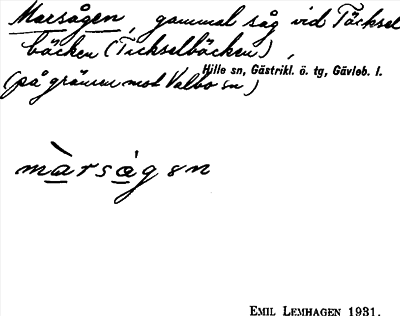 Marsågen, gammal såg vid Täcksel
bäcken (Tickselbäcken),
Hille sn, Gästrikl. ö. tg, Gävleb. l.
(på gränsen mot Valbo sn)
màrságen
EMIL LEMHAGEN 1931.